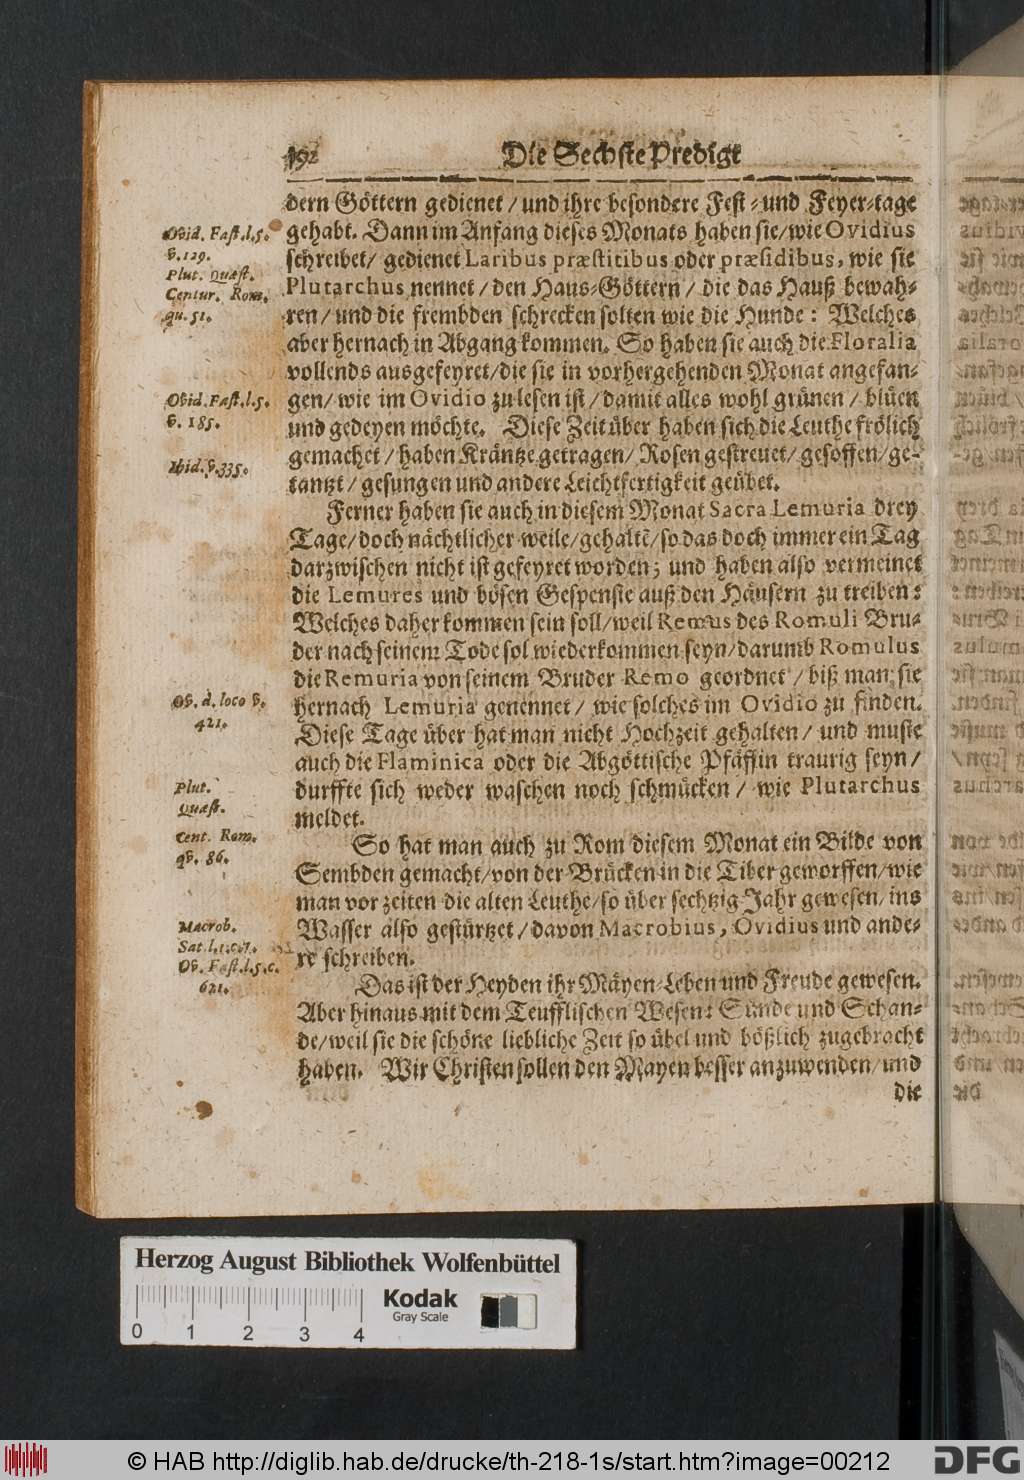 192 Die Sechste Predigt
dern Göttern gedienet / und ihre besondere Fest - und Feyer-tage
gehabt. Dann im Anfang dieses Monats haben sie/wie Ovidius
schreibet/ gedienet Laribus præstitibus oder præsidibus, wie sie
Plutarchus nennet / den Haus-Göttern / die das Hauß bewah-
ren / und die frembden schrecken solten wie die Hunde: Welches
aber hernach in Abgang kommen. So haben sie auch die Floralia
vollends ausgefeyret/die sie in vorhergehenden Monat angefan-
gen/ wie im Ovidio zu lesen ist / damit alles wohl grünen / blüen
und gedeyen möchte. Diese Zeit über haben sich die Leuthe frölich
gemachet / haben Kräntze getragen/ Rosen gestreuet/ gesoffen/ ge-
tantzt / gesungen und andere Leichtfertigkeit geübet.
Ferner haben sie auch in diesem Monat Sacra Lemuria drey
Tage/ doch nächtlicher weile/ gehaltē/ so das doch immer ein Tag
darzwischen nicht ist gefeyret worden; und haben also vermeinet
die Lemures und bösen Gespenste auß den Häusern zu treiben:
Welches daher kommen sein soll/ weil Remus des Romuli Bru-
der nach seinem Tode sol wiederkommen seyn/ darumb Romulus
die Remuria von seinem Bruder Remo geordnet / biß man sie
hernach Lemuria genennet / wie solches im Ovidio zu finden.
Diese Tage über hat man nicht Hochzeit gehalten / und muste
auch die Flaminica oder die Abgöttische Pfäffin traurig seyn /
durffte sich weder waschen noch schmücken / wie Plutarchus
meldet.
So hat man auch zu Rom diesem Monat ein Bilde von
Sembden gemacht/ von der Brücken in die Tiber geworffen/ wie
man vor zeiten die alten Leuthe/ so über sechtzig Jahr gewesen/ ins
Wasser also gestürtzet / davon Macrobius, Ovidius und ande-
re schreiben.
Das ist der Heyden ihr Mäyen-Leben und Freude gewesen.
Aber hinaus mit dem Teufflischen Wesen: Sünde und Schan-
de/ weil sie die schöne liebliche Zeit so übel und bößlich zugebracht
haben. Wir Christen sollen den Mayen besser anzuwenden/ und
die
Ovid. Fast. l. 5.
v. 129.
Plut. Quæst.
Centur. Rom.
qu. 51.
Ovid. Fast. l. 5.
v. 185.
Ibid. v. 335.
Ov. d. loco v.
421.
Plut.
Quæst.
Cent. Rom.
qv. 86.
Macrob.
Sat. l. 1. c. 7.
Ov. Fast. l. 5. c.
621.
Herzog August Bibliothek Wolfenbüttel
Kodak
Gray Scale
0 1 2 3 4
© HAB http://diglib.hab.de/drucke/th-218-1s/start.htm?image=00212
DFG